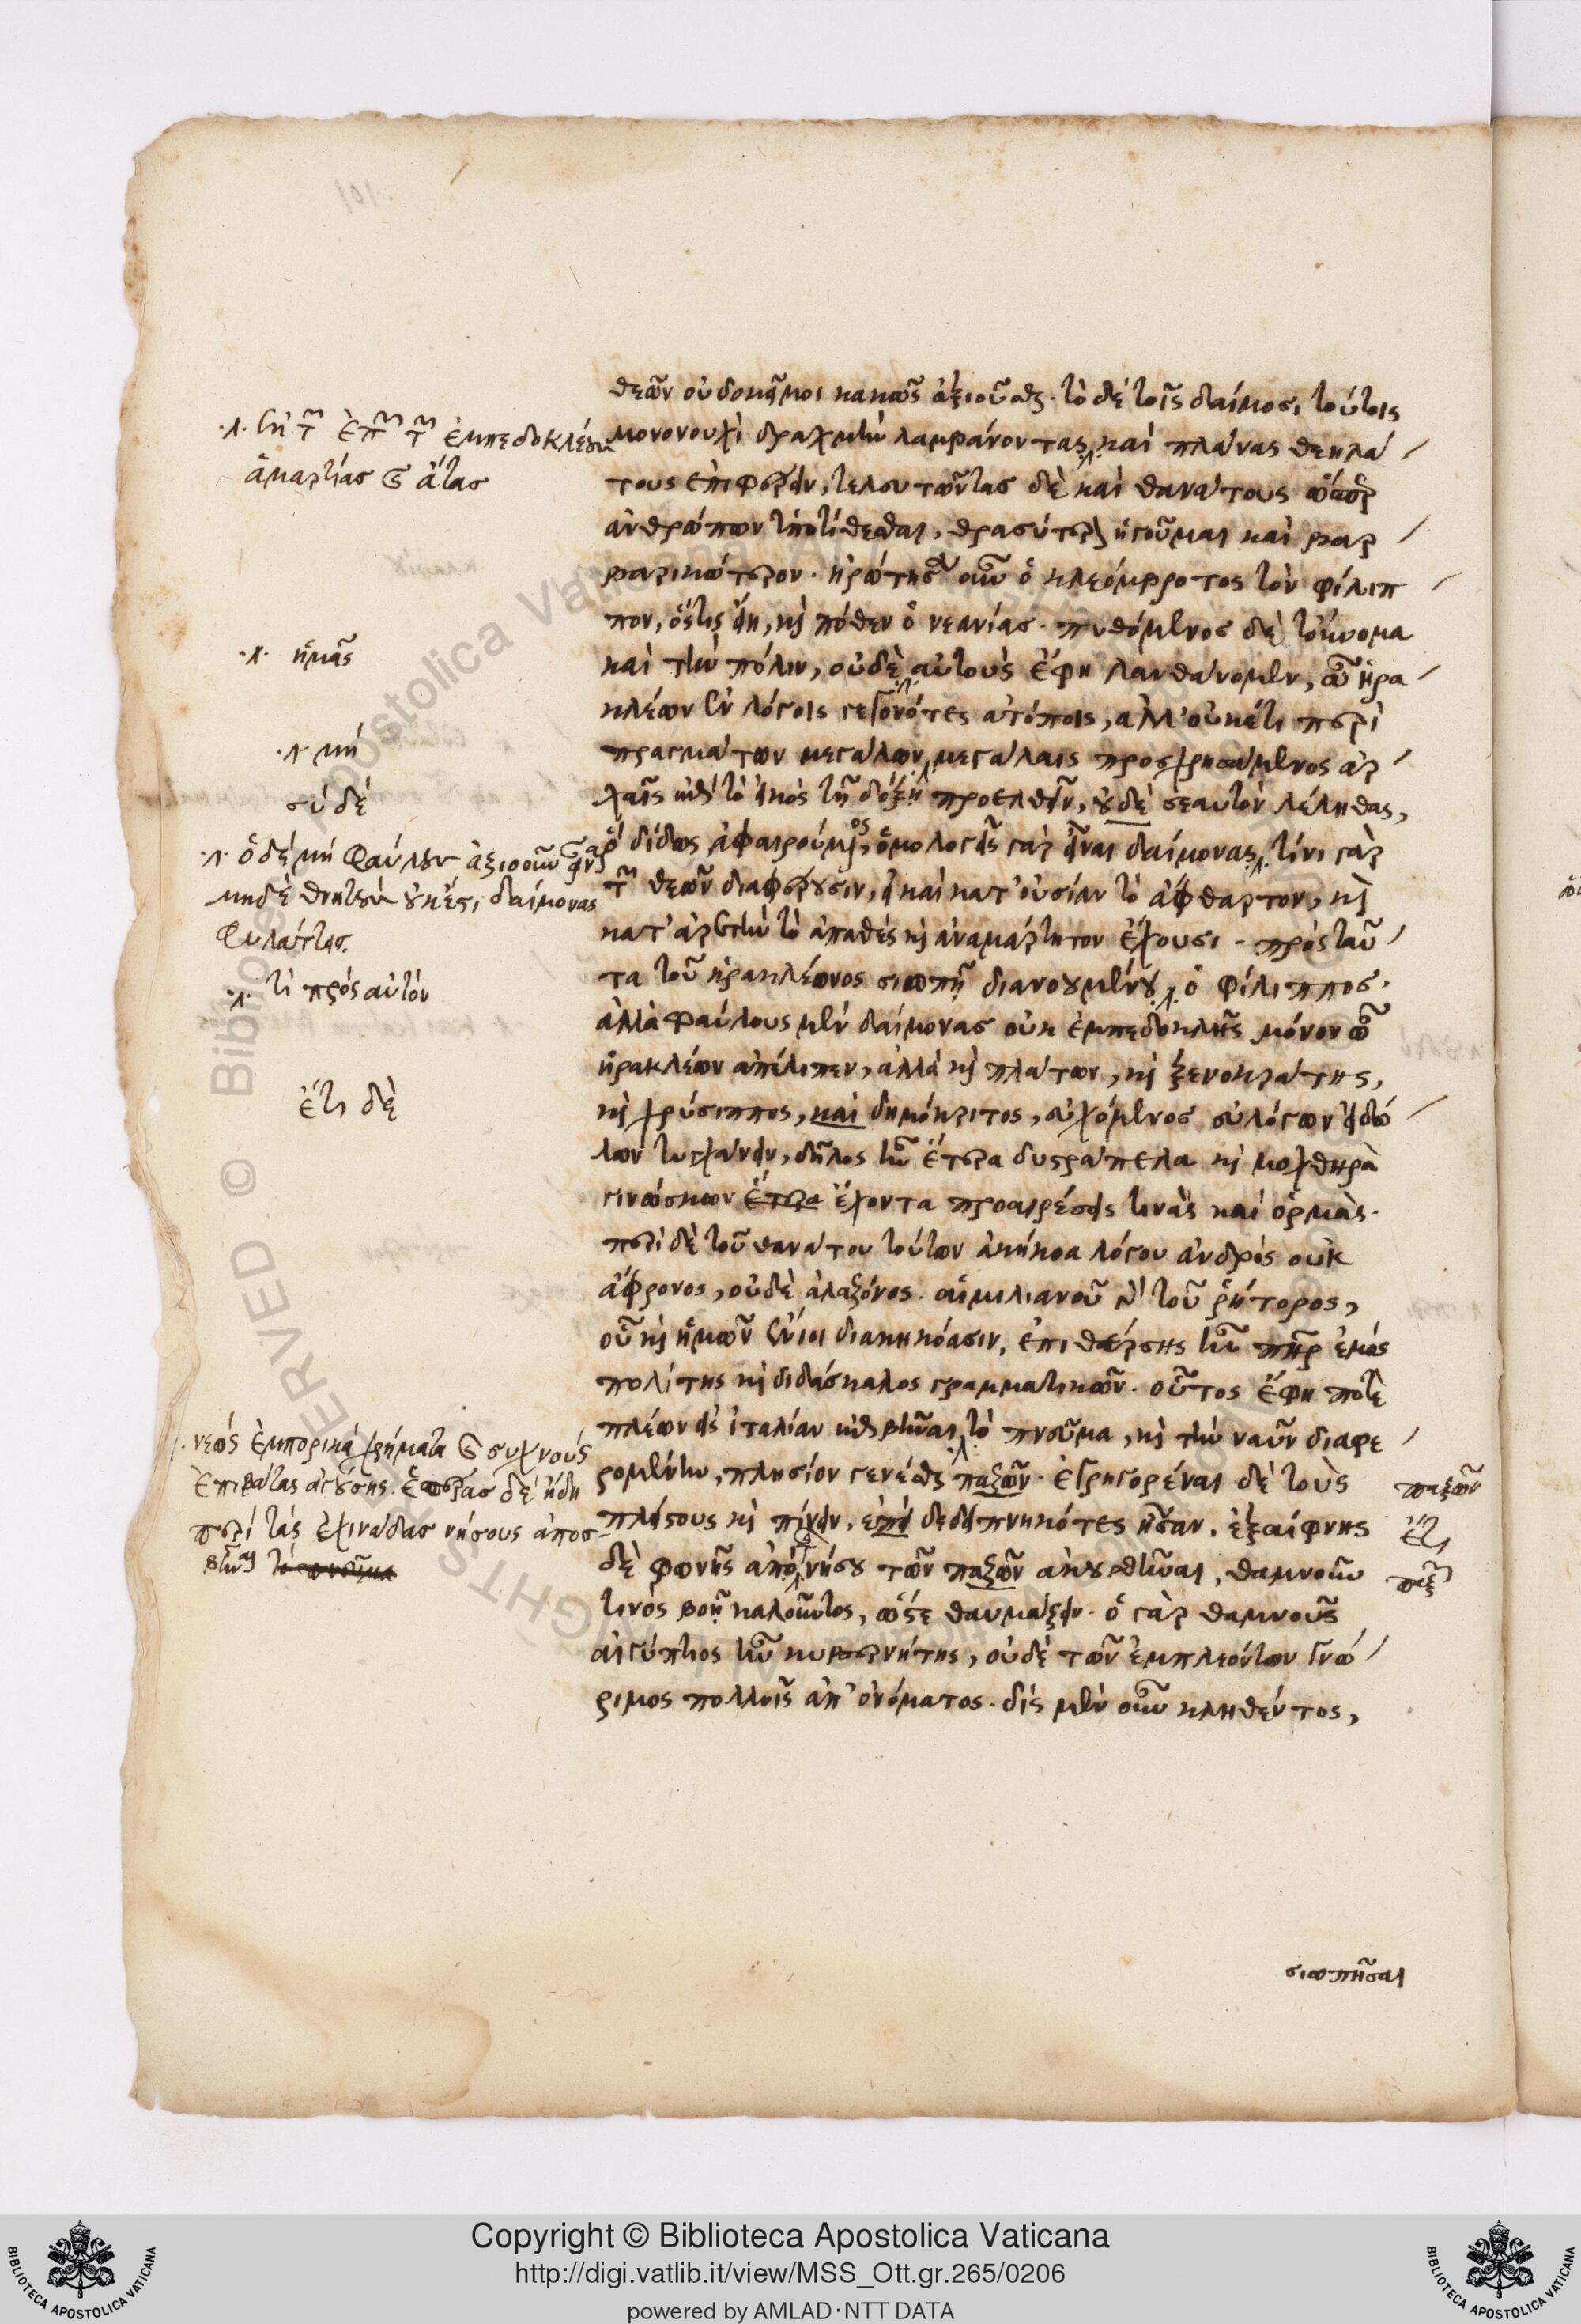 101
θεῶν οὐ δοκεῖ μοι κακῶς ἀξιοῦσθαι· τὸ δὲ τοῖς δαίμοσι τούτοις
μονονουχὶ δραχμὴν λαμβάνοντας, καὶ πλάνας θεηλά
τους ἐπιφέρειν, τελευτῶντας δὲ καὶ θανάτους ὥσπερ
ἀνθρώπων ὑποτίθεσθαι, θρασύτερον ἡγοῦμαι καὶ βαρ
βαρικώτερον. ἠρώτησεν οὖν ὁ κλεόμβροτος τὸν φίλιπ
πον, ὅστις εἴη, καὶ πόθεν ὁ νεανίας. πυθόμενος δὲ τοὔνομα
καὶ τὴν πόλιν, οὐδὲ αὐτοὺς ἔφη λανθάνομεν, ὦ ἡρα
κλέων ἐν λόγοις γεγονότες ἀτόποις, ἀλλ' οὐκ ἔτι περὶ
πραγμάτων μεγάλων, μεγάλαις προσχρησάμενος ἀρ
χαῖς ἐπὶ τὸ εἰκὸς τῇ δόξῃ προελθεῖν, οὐδὲ σεαυτὸν λέληθας,
ὃ δίδως ἀφαιρούμενος, ὁμολογεῖς γὰρ εἶναι δαίμονας, τίνι γὰρ
τῶν θεῶν διαφέρουσιν, εἰ καὶ κατ' οὐσίαν τὸ ἄφθαρτον, καὶ
κατ' ἀρετὴν τὸ ἀπαθὲς καὶ ἀναμάρτητον ἔχουσι. πρὸς ταῦ
τα τοῦ ἡρακλέωνος σιωπῇ διανοουμένου, ὁ φίλιππος.
ἀλλὰ φαύλους μὲν δαίμονας οὐκ ἐμπεδοκλῆς μόνον ὦ
ἡρακλέων ἀπέλιπεν, ἀλλὰ καὶ πλάτων, καὶ ξενοκράτης,
καὶ χρύσιππος, καὶ δημόκριτος, εὐχόμενος εὐλόγων εἰδώ
λων τυγχάνειν, δῆλος ἦν ἕτερα δυστράπελα καὶ μοχθηρὰ
γινώσκων ἕτερα ἔχοντα προαιρέσεις τινὰς καὶ ὁρμάς.
περὶ δὲ τοῦ θανάτου τούτων ἀκήκοα λόγου ἀνδρὸς οὐκ
ἄφρονος, οὐδὲ ἀλαζόνος. αἰμιλιανοῦ γὰρ τοῦ ῥήτορος,
οὗ καὶ ἡμῶν ἔνιοι διακηκόασιν, ἐπιθέρσης ἦν πατὴρ ἐμὸς
πολίτης καὶ διδάσκαλος γραμματικῶν. οὗτος ἔφη ποτὲ
πλέων εἰς ἰταλίαν ἐπιβῆναι τὸ πνεῦμα, καὶ τὴν ναῦν διαφε
ρομένην, πλησίον γενέσθαι παξῶν. ἐγρηγορέναι δὲ τοὺς
πλείσους καὶ πίνειν, ἐπεὶ δεδειπνηκότες ἦσαν, ἐξαίφνης
δὲ φωνῆς ἀπὸ νήσου τῶν παξῶν ἀκουσθῆναι, θαμνοῦν
τινος βοῇ καλοῦντος, ὥστε θαυμάζειν. ὁ γὰρ θαμνοῦς
αἰγύπτιος ἦν κυβερνήτης, οὐδὲ τῶν ἐμπλεόντων γνώ
ριμος πολλοῖς ἀπ' ὀνόματος. δὶς μὲν οὖν κληθέντος,
σιωπῆσαι
·λ· ἐκ τῶν ἐπῶν τῶν ἐμπεδοκλέους
ἁμαρτίας καὶ ἄτας
·λ· ἡμᾶς
·λ· μὴ
σὺ δὲ
·λ· ὁ δὲ μὴ φαύλους ἀξιοῦν εἶναι
μηδὲ θνητοὺς οὐκέτι δαίμονας
φυλάττει.
·λ· τι πρὸς αὑτὸν
ἔτι δὲ
·νεὼς ἐμπορικὰ χρήματα καὶ συχνοὺς
ἐπιβάτας ἀγούσης. ἑσπέρας δὲ ἤδη
περὶ τὰς ἐχινάδας νήσους ἀποσ
βῆναι τὸ πνεῦμα
παξῶν
ἔτι
παξ
Copyright © Biblioteca Apostolica Vaticana
http://digi.vatlib.it/view/MSS_Ott.gr.265/0206
powered by AMLAD·NTT DATA
BIBLIOTECA APOSTOLICA VATICANA
BIBLIOTECA APOSTOLICA VATICANA